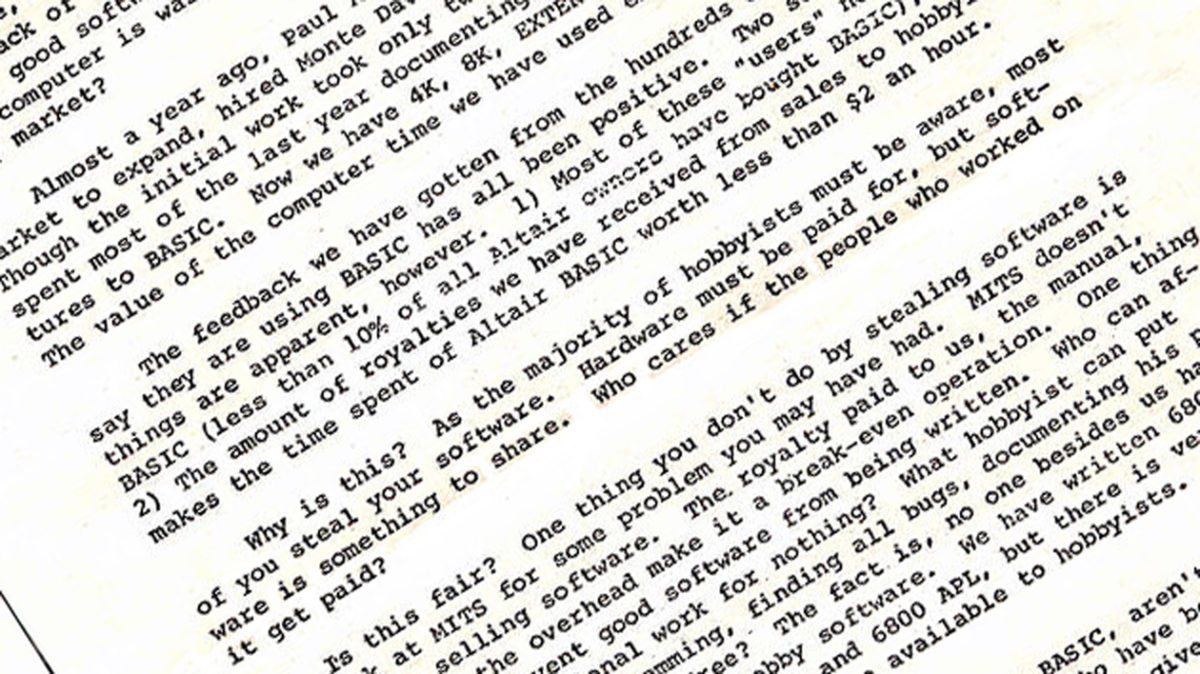 ack of
good softw
computer is wa
market?
Almost a year ago, Paul
arket to expand, hired Monte Dav
Though the initial work took only tw
spent most of the last year documenting
tures to BASIC. Now we have 4K, 8K, EXTEN
The value of the computer time we have used e
The feedback we have gotten from the hundreds
say they are using BASIC has all been positive. Two s
things are apparent, however. 1) Most of these "users" n
BASIC (less than 10% of all Altair owners have bought BASIC),
2) The amount of royalties we have received from sales to hobby
makes the time spent of Altair BASIC worth less than $2 an hour.
Why is this? As the majority of hobbyists must be aware, most
of you steal your software. Hardware must be paid for, but soft-
ware is something to share. Who cares if the people who worked on
it get paid?
Is this fair? One thing you don't do by stealing software is
k at MITS for some problem you may have had. MITS doesn't
selling software. The royalty paid to us, the manual,
the overhead make it a break-even operation. One thing
vent good software from being written. Who can af-
onal work for nothing? What hobbyist can put
mming, finding all bugs, documenting his p
ree? The fact is, no one besides us ha
obby software. We have written 680
and 6800 APL, but there is ve
available to hobbyists.
BASIC, aren't
ho have b
give